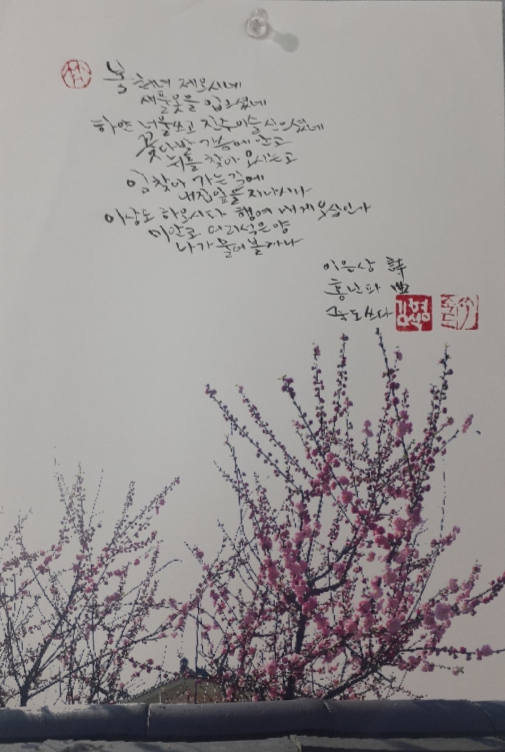 봄처녀 제오시네
새풀옷을 입으셨네
하얀 너울쓰고 진주이슬 신으셨네
꽃다발 가슴에 안고
뉘를 찾아 오시는고
임 찾아 가는 길에
내집앞을 지나시나
이상도 하오시다 행여 내게 오심인가
미안코 어리석은양
나가 물어볼까나
이은상 詩
홍난파 曲
쓰다